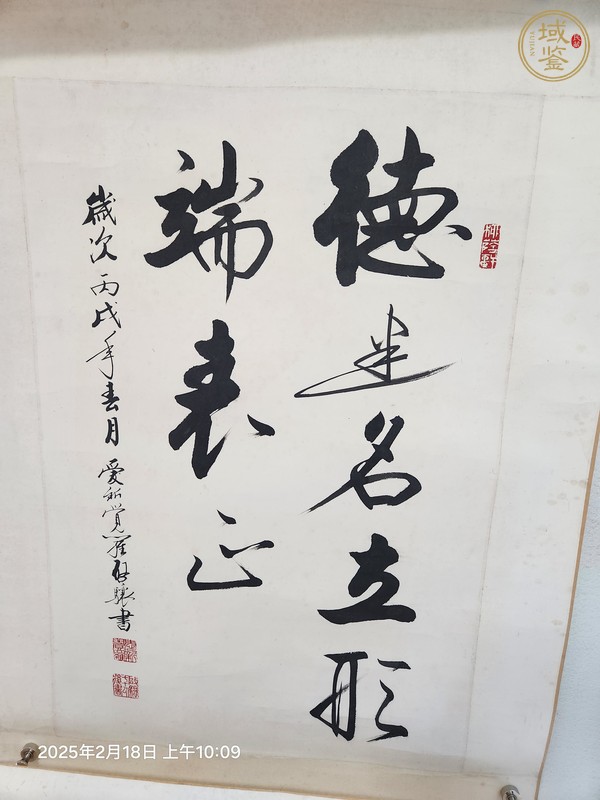 德建名立形
端表正
歲次丙戌年春月 愛新覺羅啟驤書
域鉴
YUJIAN
2025年2月18日 上午10:09